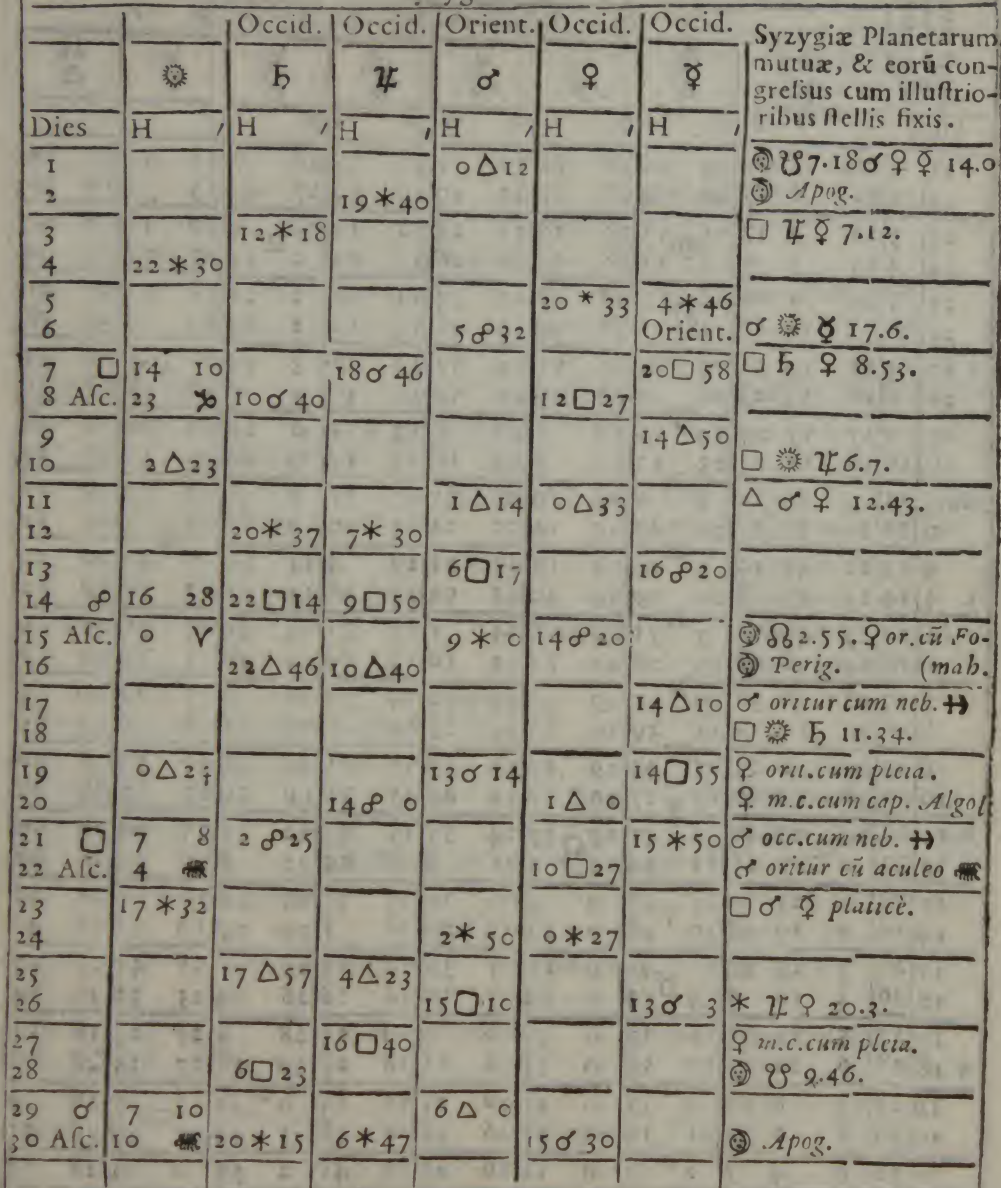 Occid. Occid. Orient. Occid. Occid. Syzygiæ Planetarum
☉ ♄ ♃ ♂ ♀ ☿ mutuæ, & eorū con-
greſsus cum illuſtrio-
Dies H ′ H ′ H ′ H ′ H ′ H ′ ribus ſtellis fixis.
1 0 △ 12 ☽ ☋ 7.18 ☌ ♀ ☿ 14.0
2 19 ⚹ 40 ☽ Apog.
3 12 ⚹ 18 □ ♃ ☿ 7.12.
4 22 ⚹ 30
5 20 ⚹ 33 4 ⚹ 46
6 5 ☍ 32 Orient. ☌ ☉ ☿ 17.6.
7 □ 14 10 18 ☌ 46 20 □ 58 □ ♄ ♀ 8.53.
8 Aſc. 23 ♑ 10 ☌ 40 12 □ 27
9 14 △ 50
10 2 △ 23 □ ☉ ♃ 6.7.
11 1 △ 14 0 △ 33 △ ♂ ♀ 12.43.
12 20 ⚹ 37 7 ⚹ 30
13 6 □ 17 16 ☍ 20
14 ☍ 16 28 22 □ 14 9 □ 50
15 Aſc. 0 ♈ 9 ⚹ 0 14 ☍ 20 ☽ ☊ 2.55. ♀ or. cū Fo-
16 22 △ 46 10 △ 40 ☽ Perig. (mah.
17 14 △ 10 ♂ oritur cum neb. ♐
18 □ ☉ ♄ 11.34.
19 0 △ 13 ☌ 14 14 □ 55 ♀ orit. cum pleia.
20 14 ☍ 0 1 △ 0 ♀ m.c. cum cap. Algol
21 □ 7 8 2 ☍ 25 15 ⚹ 50 ♂ occ. cum neb. ♐
22 Aſc. 4 ♏ 10 □ 27 ♂ oritur cū aculeo ♏
23 17 ⚹ 32 □ ♂ ☿ platicè.
24 2 ⚹ 50 0 ⚹ 27
25 17 △ 57 4 △ 23
26 15 □ 10 13 ☌ 3 ⚹ ♃ ♀ 20.3.
27 16 □ 40 ♀ m.c. cum pleia.
28 6 □ 23 ☽ ☋ 9.46.
29 ☌ 7 10 6 △ 0
30 Aſc. 10 ♏ 20 ⚹ 15 6 ⚹ 47 15 ☌ 30 ☽ Apog.